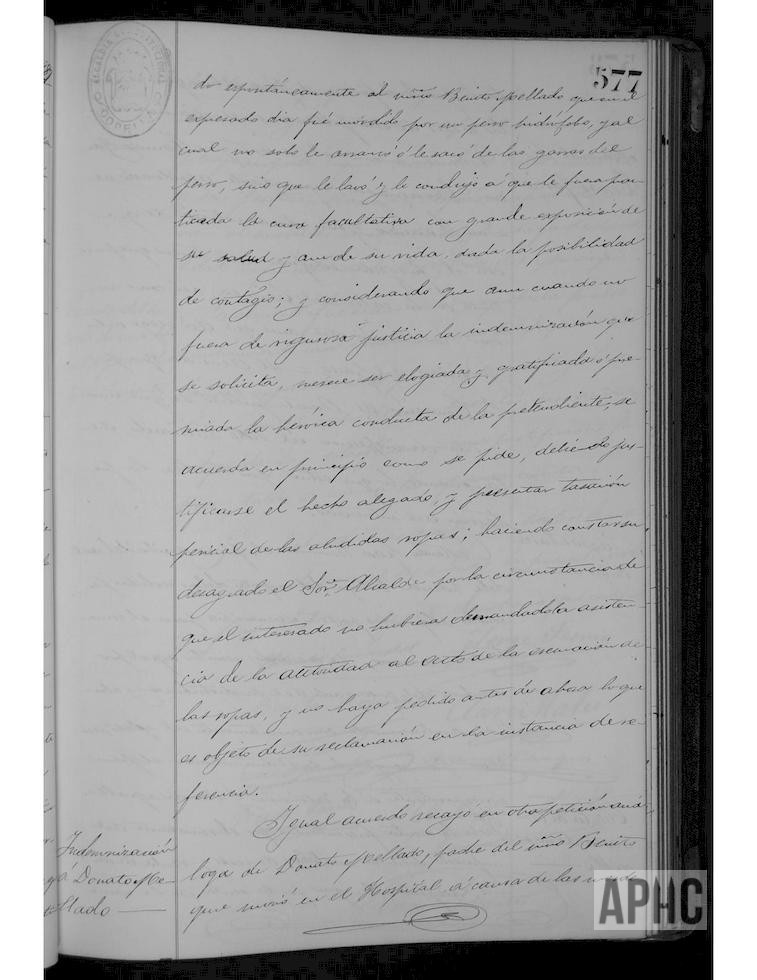 577
do espontáneamente al niño Benito Mellado que en el
expresado dia fué mordido por un perro hidrófobo, y al
cual no solo le arrancó ó le sacó de las garras del
perro, sino que le lavó y le condujo á que le fuera prac-
ticada la cura facultativa con grande exposición de
su salud y aun de su vida, dada la posibilidad
de contagio; y considerando que aun cuando no
fuera de rigurosa justicia la indemnización que
se solicita, merece ser elogiada y gratificada ó pre-
miada la heróica conducta de la pretendiente, se
acuerda en principio como se pide, debiendo jus-
tificarse el hecho alegado, y presentar tasación
pericial de las aludidas ropas; haciendo constar su
desagrado el Sor. Alcalde por la circunstancia de
que el interesado no hubiera demandado la asisten-
cia de la autoridad al acto de la
las ropas, y no haya pedido antes de ahora lo que
es objeto de su reclamación en la instancia de re-
ferencia.
Igual acuerdo recayó en otra petición aná-
loga de Donato Mellado, padre del niño Benito
que murió en el Hospital, á causa de las
Indemnización
a Donato Me-
llado
APHC